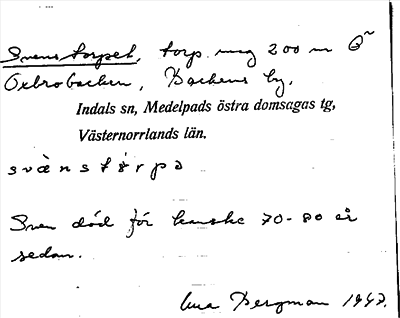 Svenstorpet, torp. mag 200 m Ö
Örbrobacken, Backens by,
Indals sn, Medelpads östra domsagas tg,
Västernorrlands län.
svànstórpə
Sven död för kanske 70-80 år
sedan.
Bergman 1943.